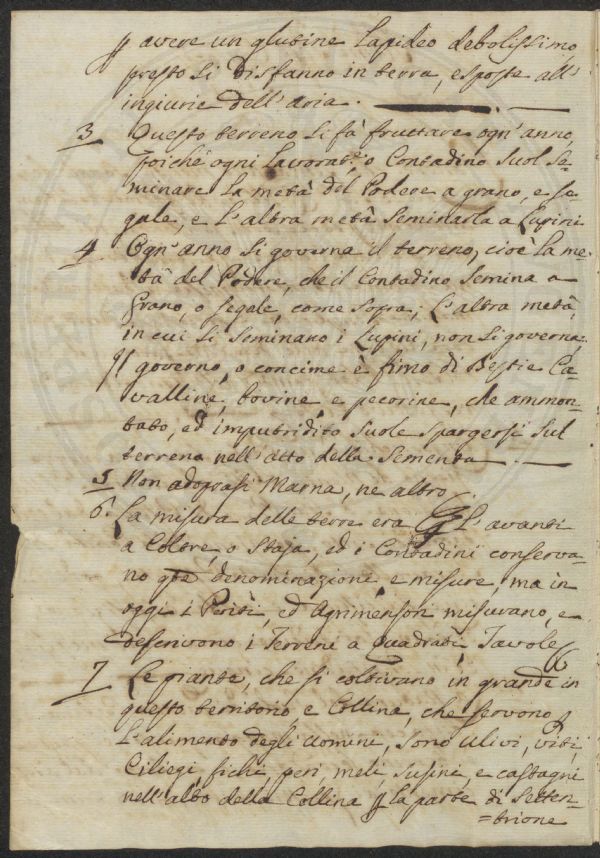 p avere un glutine Lapideo debolissimo
presto si disfanno in terra, esposte all'
ingiurie dell'aria.
3 Questo terreno si fà fruttare ogn'anno,
poiche ogni Lavorat.e o Contadino suol se-
minare La metà del Podere a grano, e se-
gale, e L'altra metà seminarla a Lupini
4 Ogn'anno si governa il terreno, cioè La me-
tà del Podere, che il Contadino semina a
grano, o segale, come sopra; L'altra metà,
in cui si seminano i Lupini, non si governa.
Il governo, o concime è fimo di Bestie Ca-
valline, bovine e pecorine, che ammon-
tato, ed imputridito suole spargersi sul
terreno nell'atto della sementa.
5 Non adoprasi Marna, ne altro.
6. La misura delle terre era p L'avanti
a Coltre, o Staja, ed i Contadini conserva-
no qte denominazioni e misure, ma in
oggi i Periti, ed Agrimensori misurano, e
descrivono i Terreni a quadrati Tavole
7 Le piante, che si coltivano in grande in
questo territorio, e Collina, che servono p
L'alimento degli uomini, sono ulivi, viti,
Ciliegi, fichi, peri, meli, susini, e castagni
nell'alto della Collina p la parte di Setten-
=trione